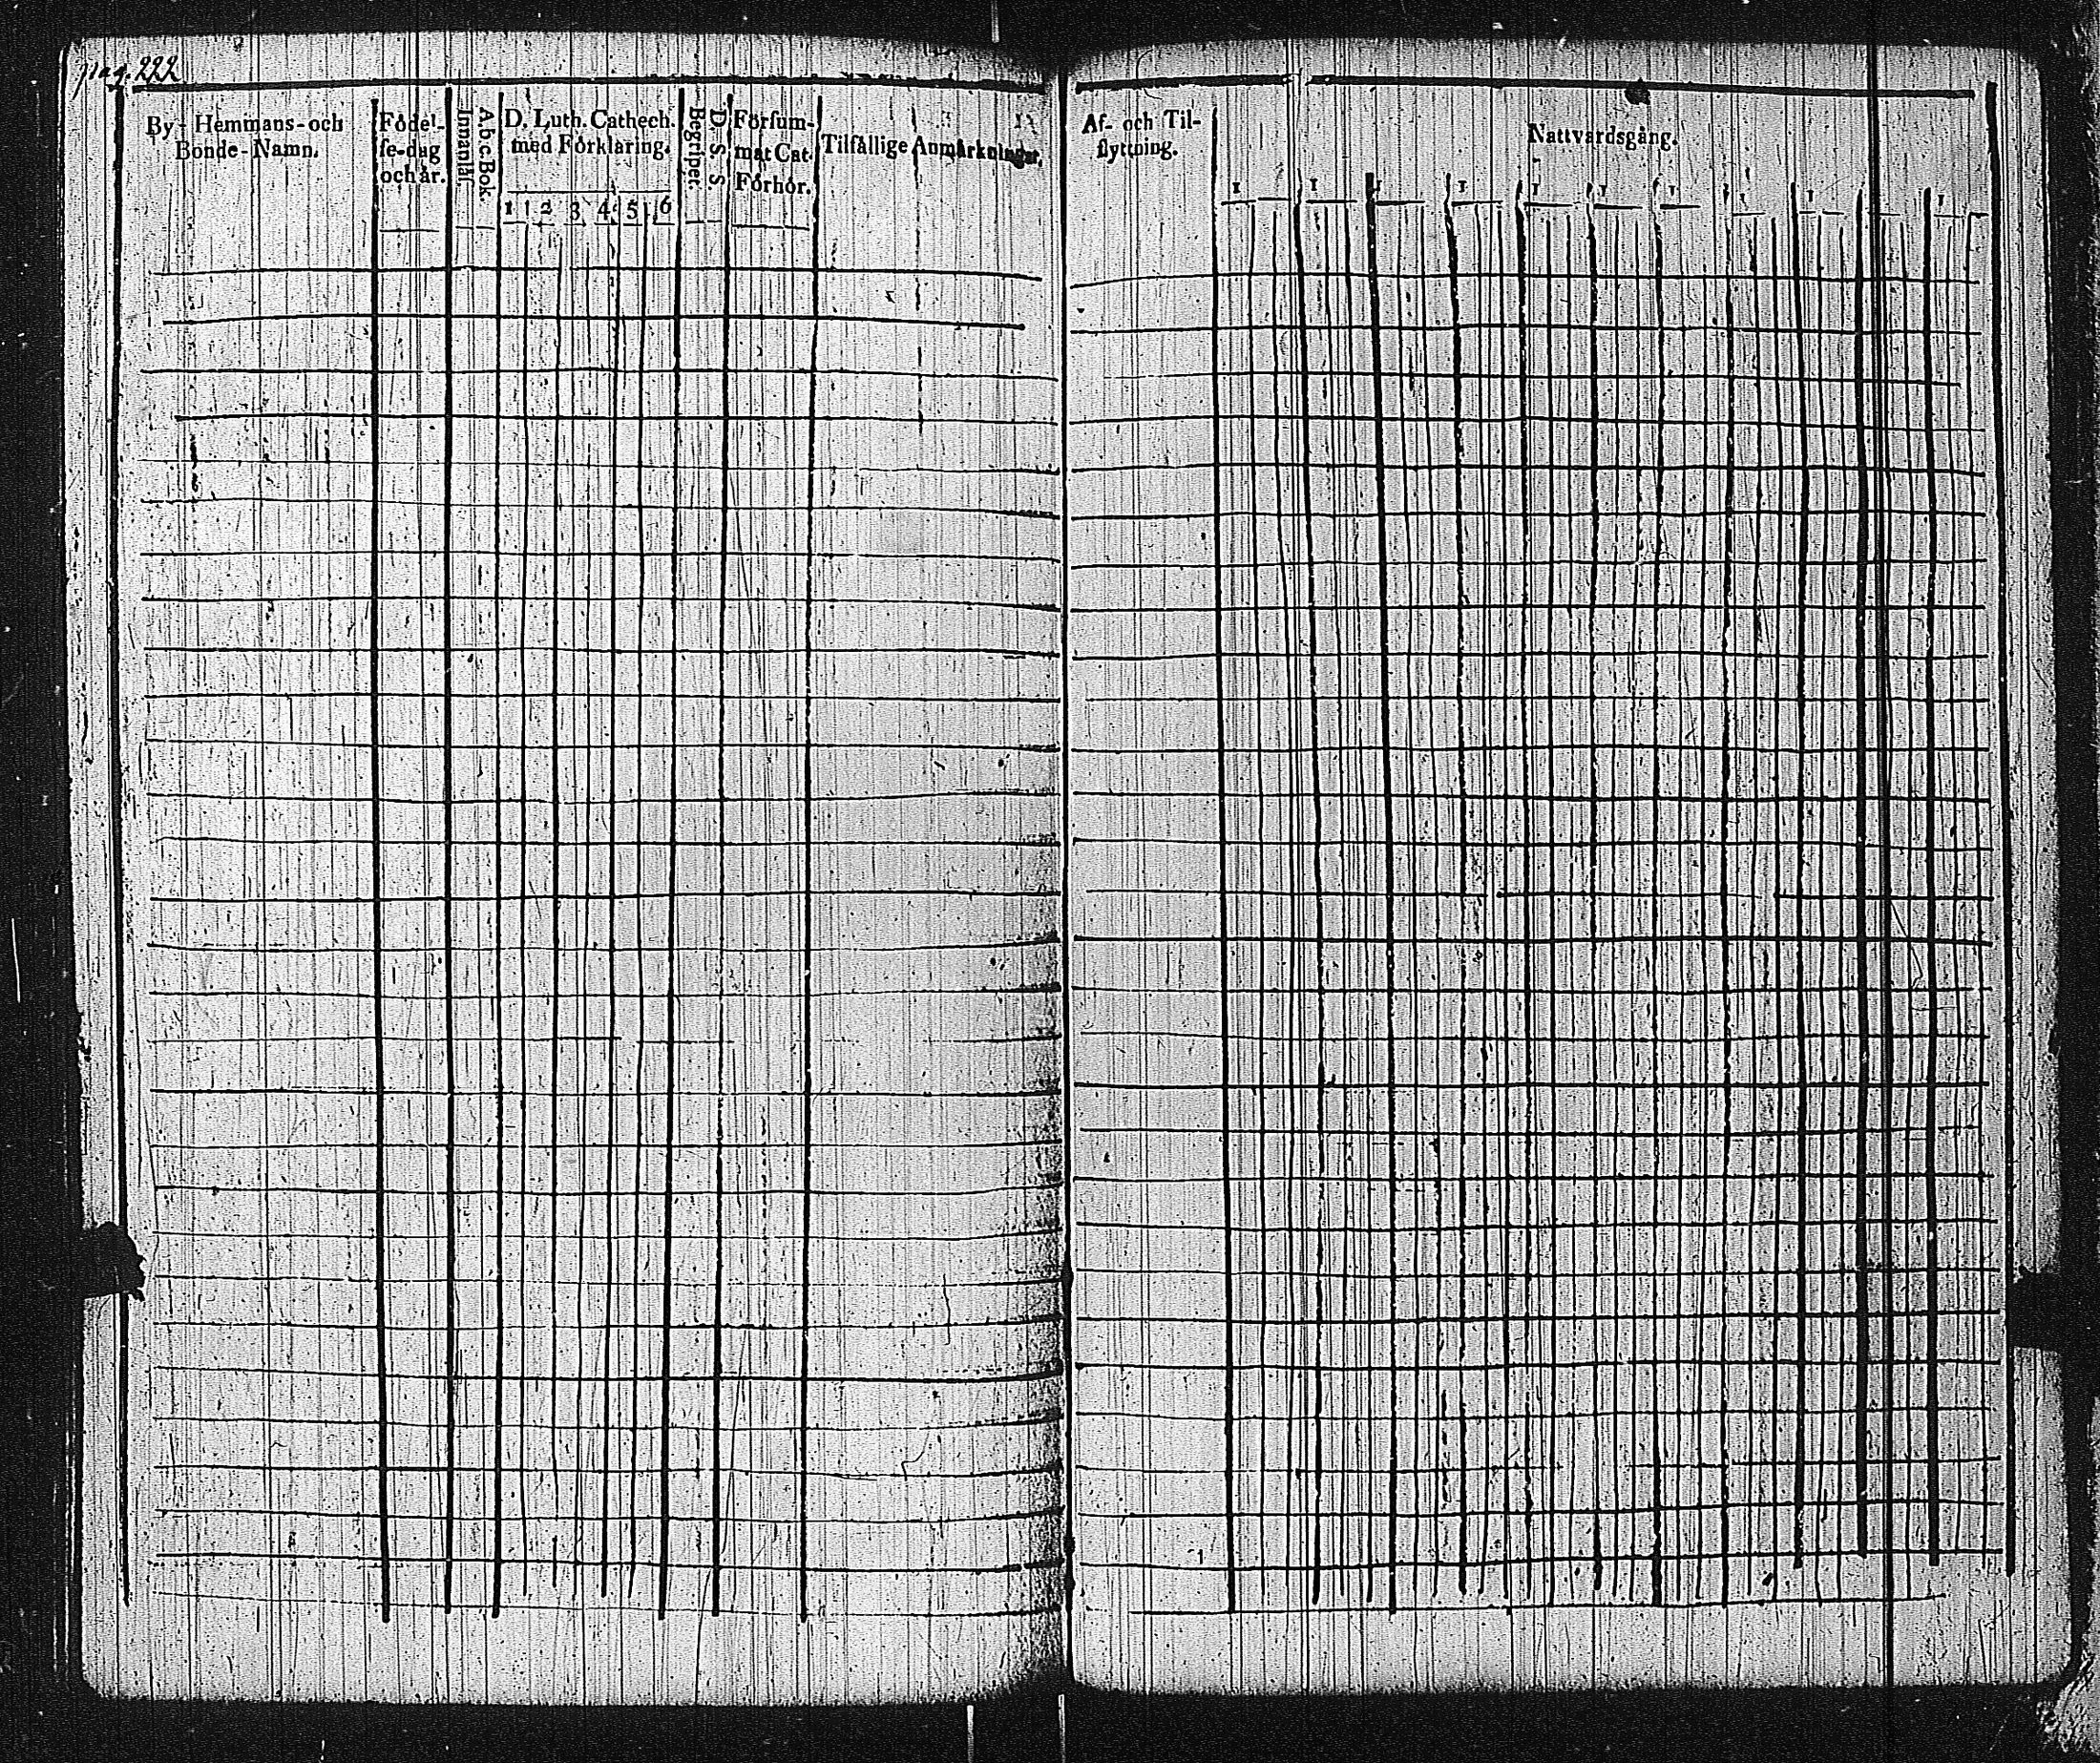 pag. 222
By- Hemmans- och
Bonde-Namn.
Födel-
se-dag
och år.
A.b.c.Bok.
Innanläs.
D. Luth. Cathech.
med Förklaring.
1 2 3 4 5 6
D. S. S.
Begriper.
Försum-
mat Cat.
Förhör.
Tilfällige Anmärkningar.
Af- och Til-
flyttning.
Nattvardsgång.
1 1 1 1 1 1 1 1 1 1